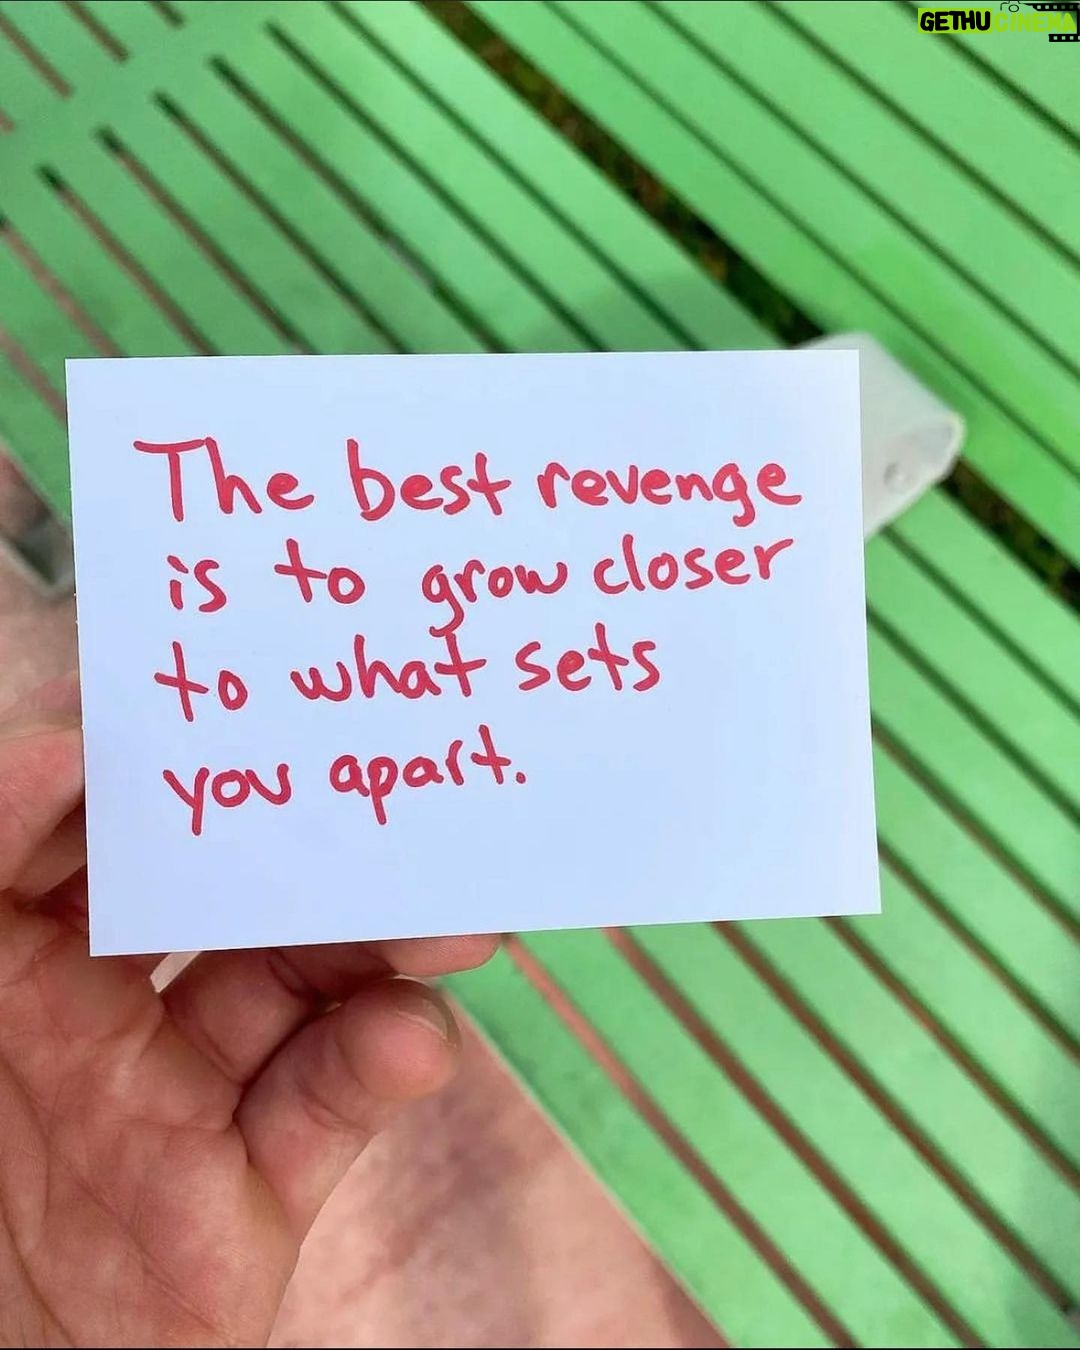 GETHUCINEMA
The best revenge
is to grow closer
to what sets
you apart.